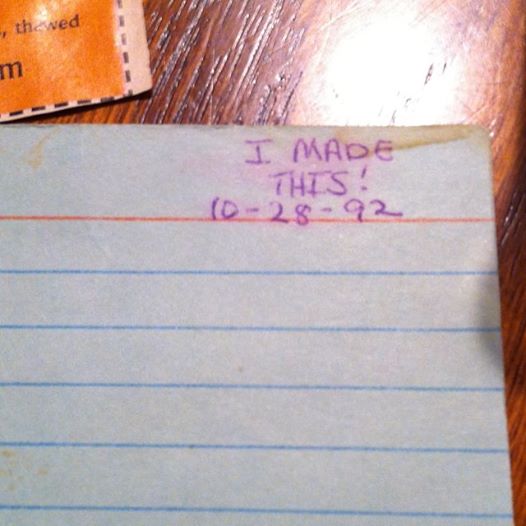 , thawed
m
I MADE
THIS!
10-28-92